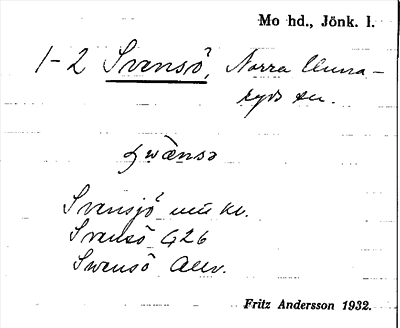 Mo hd., Jönk. l.
1-2 Svensö, Norra Unna-
ryds sn.
swänsö
Svensjö uttu kl.
Svensö G26
Swensö Allv.
Fritz Andersson 1932.